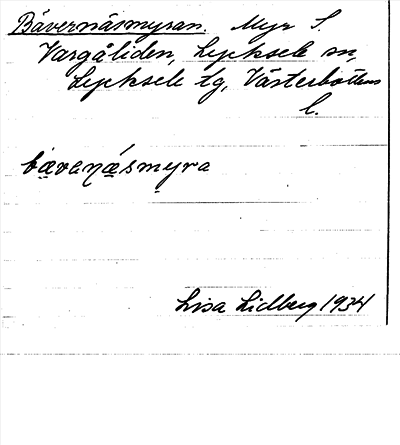 Bävernäsmyran. Myr S.
Vargåliden, Lycksele sn,
Lycksele tg, Västerbottens
l.
bävanäsmyra
Lisa Lidberg 1934